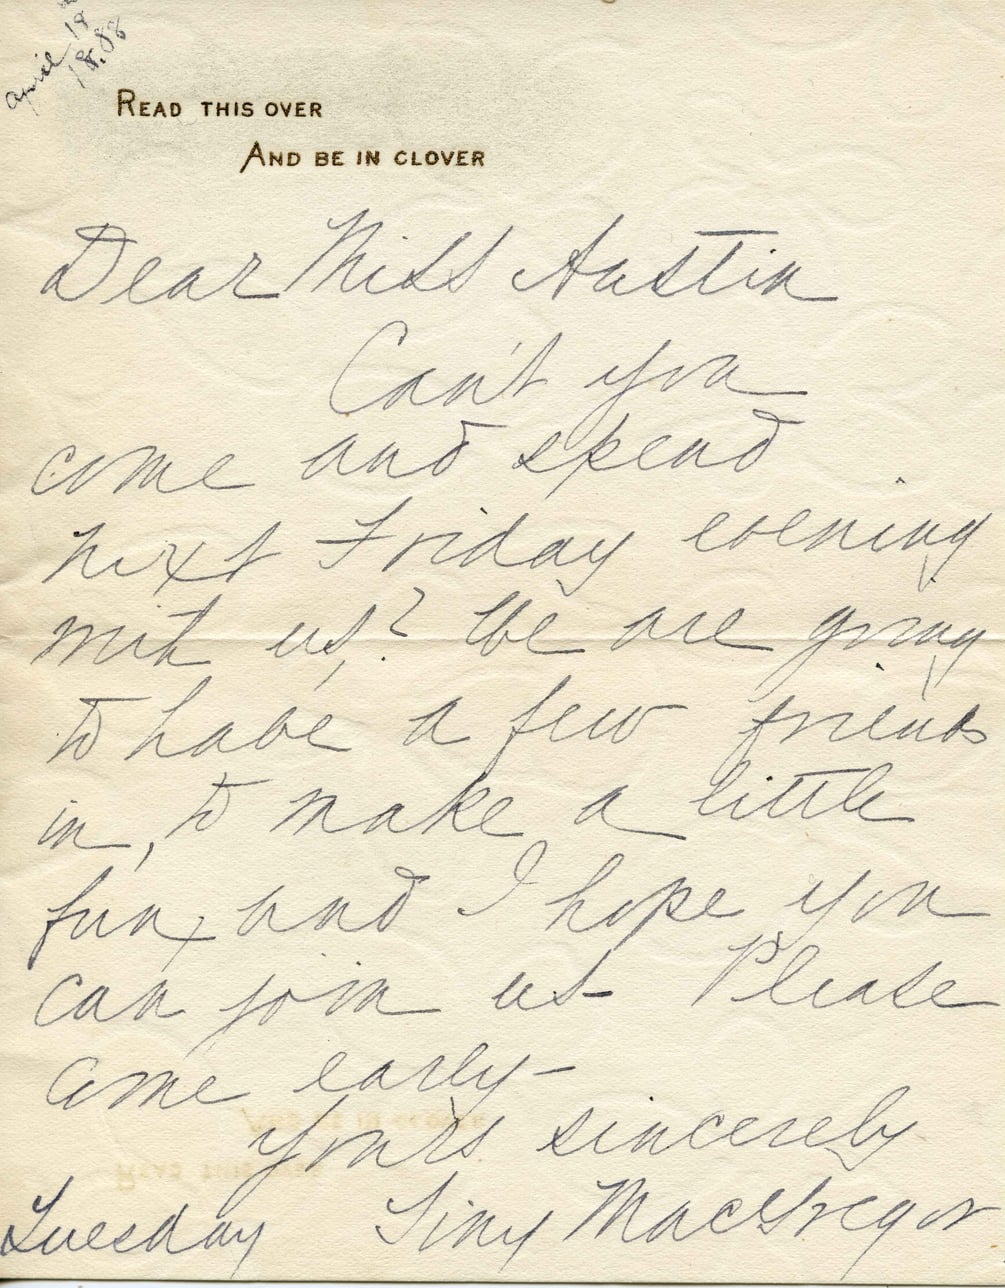 April 18
18.88
READ THIS OVER
AND BE IN CLOVER
Dear Miss Austin
Can't you
come and spend
next Friday evening
with us? We are going
to have a few friends
in, to make a little
fun, and I hope you
can join us - Please
come early -
Yours sincerely
Tuesday Tiny MacGregor